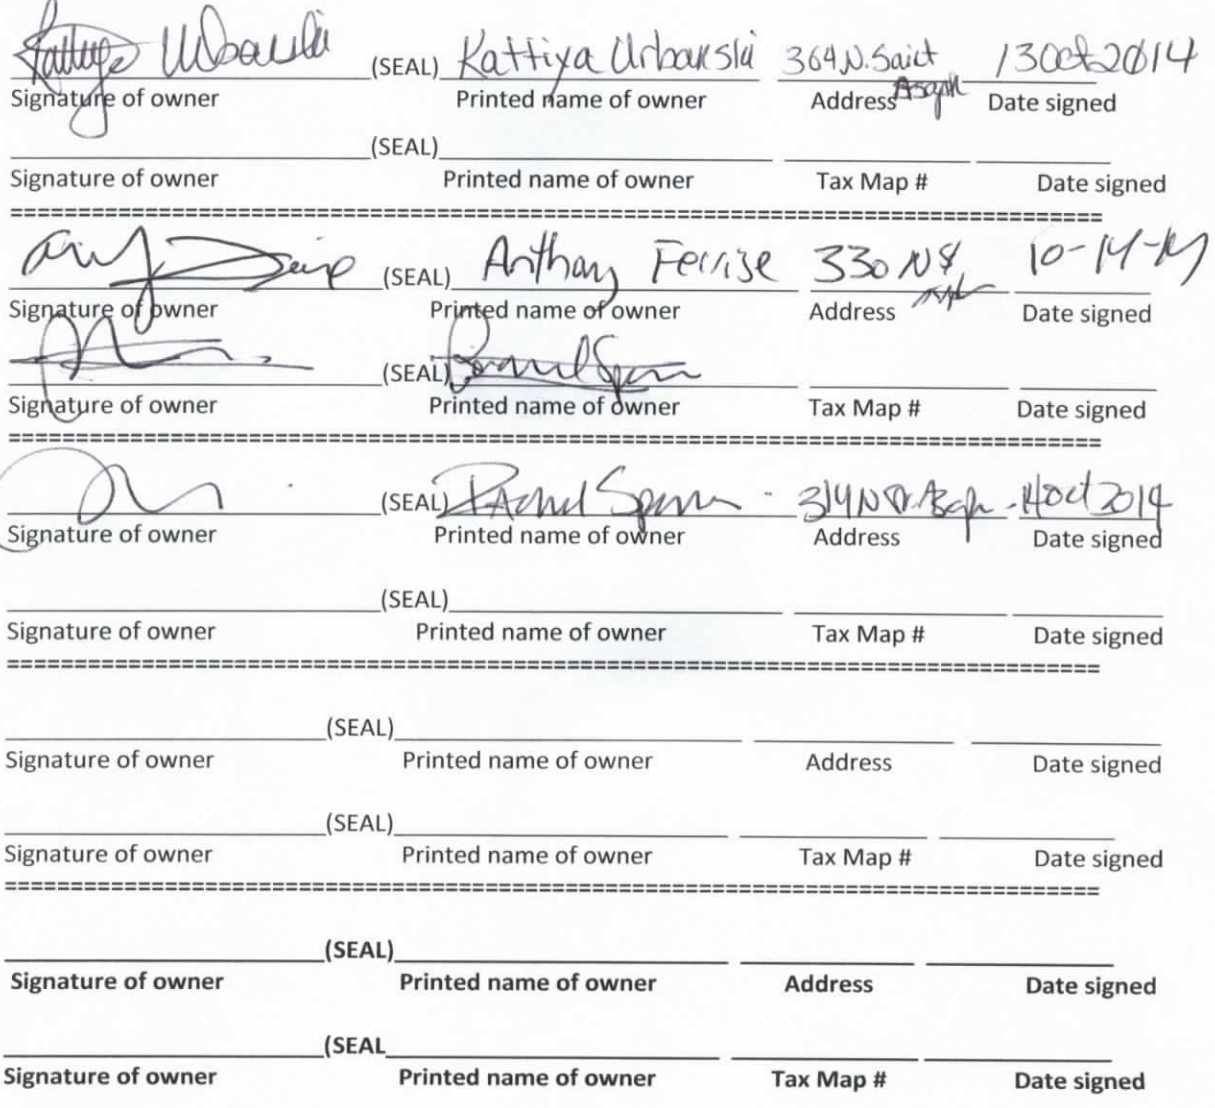 Kattiya Urbanski (SEAL) Kattiya Urbanski 364 N. Saint Asaph 13 Oct 2014
Signature of owner Printed name of owner Address Date signed
(SEAL)
Signature of owner Printed name of owner Tax Map # Date signed
================================================================================
(SEAL) Anthony Ferrise 330 N St, 10-14-14
Signature of owner Printed name of owner Address Date signed
(SEAL)
Signature of owner Printed name of owner Tax Map # Date signed
================================================================================
(SEAL) Rachel 314 N St. Asaph 14 Oct 2014
Signature of owner Printed name of owner Address Date signed
(SEAL)
Signature of owner Printed name of owner Tax Map # Date signed
================================================================================
(SEAL)
Signature of owner Printed name of owner Address Date signed
(SEAL)
Signature of owner Printed name of owner Tax Map # Date signed
================================================================================
(SEAL)
Signature of owner Printed name of owner Address Date signed
(SEAL
Signature of owner Printed name of owner Tax Map # Date signed